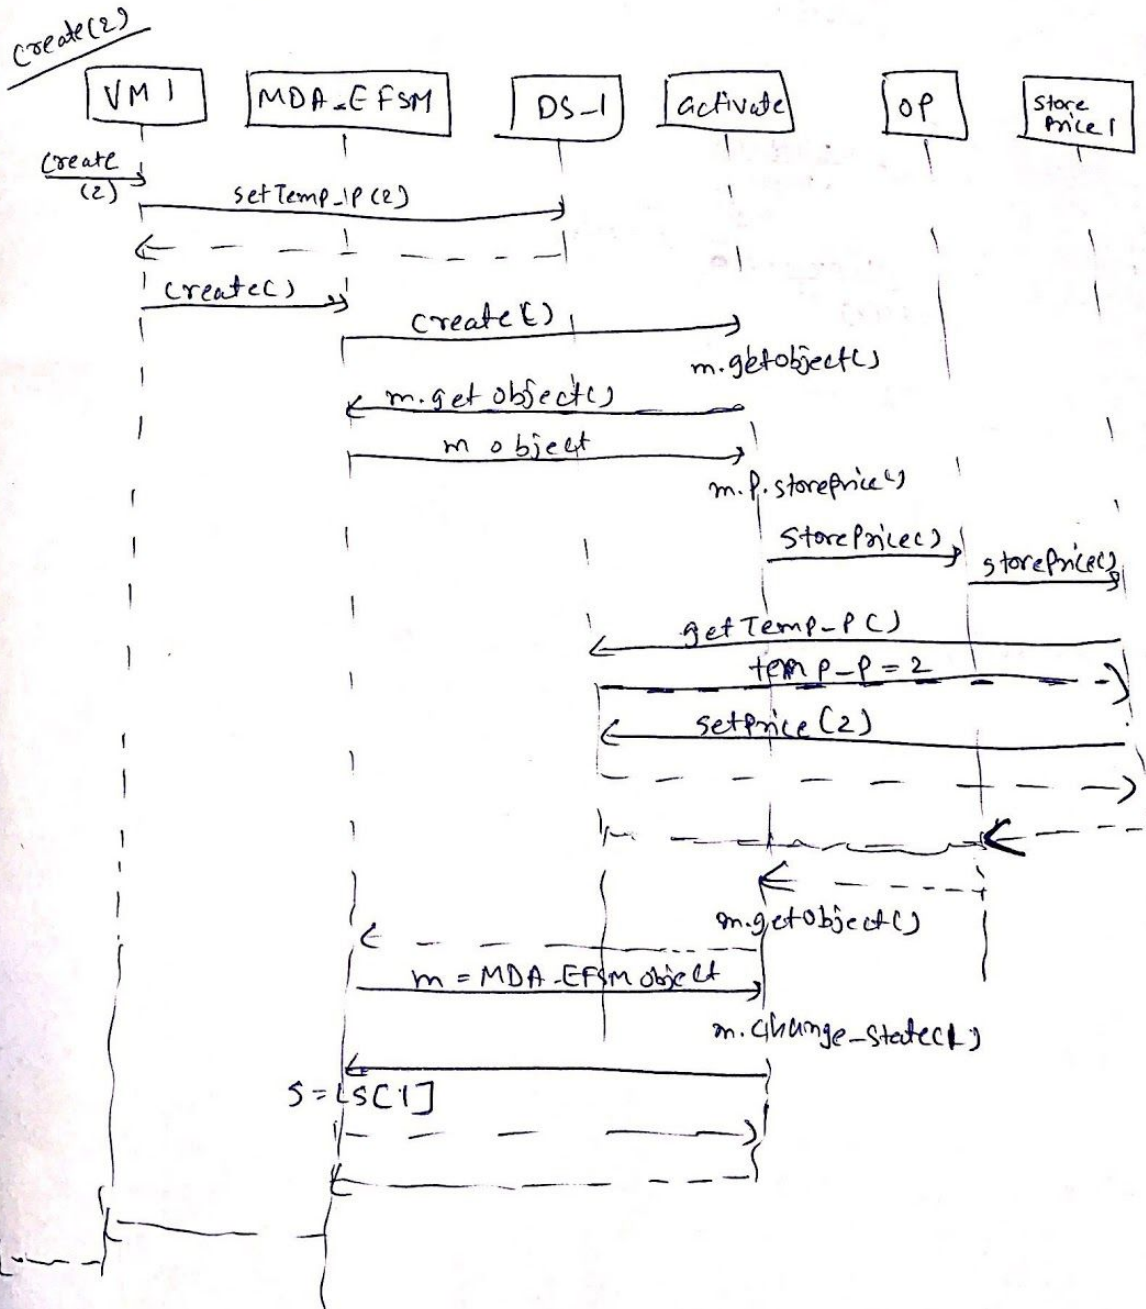 create(2)
VM1
MDA_EFSM
DS-1
activate
OP
Store
Price1
create
(2)
setTemp_ip(2)
create()
create()
m.getobject()
m.get object()
m object
m.p.storeprice()
StorePrice()
storePrice()
getTemp-P()
temp-p=2
setprice(2)
m.getObject()
m=MDA-EFSM object
m.change-state(1)
S=LS[1]